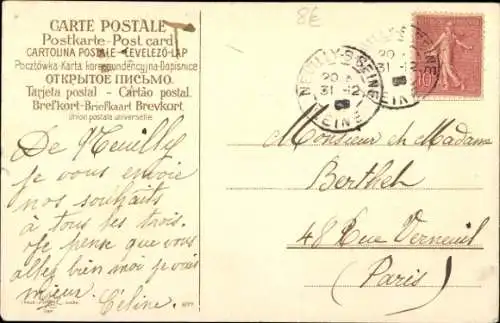 8€
T
CARTE POSTALE
Postkarte-Post card
CARTOLINA POSTALE-LEVELEZŐ-LAP
Pocztówka-Karta korespondencyjna-Dopisnice
ОТКРЫТОЕ ПИСЬМО.
Tarjeta postal - Cartão postal.
Brefkort-Briefkaart Brevkort.
Union postale universelle.
NEUILLY-S-SEINE
20
31 -12
SEINE
20
31 -12
SEINE
10
De Neuilly
je vous envoie
nos souhaits
à tous les trois.
Je pense que vous
allez bien moi je vais
mieux.
Céline.
Monsieur et Madame
Berthet
48 Rue Verneuil
(Paris)